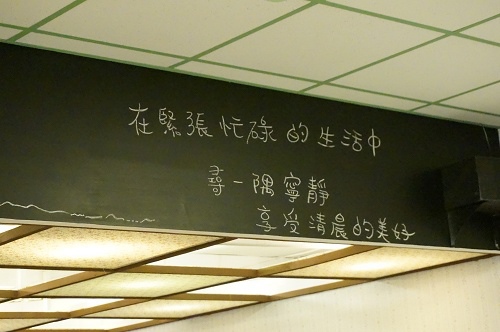 在緊張忙碌的生活中
尋一隅寧靜
享受清晨的美好